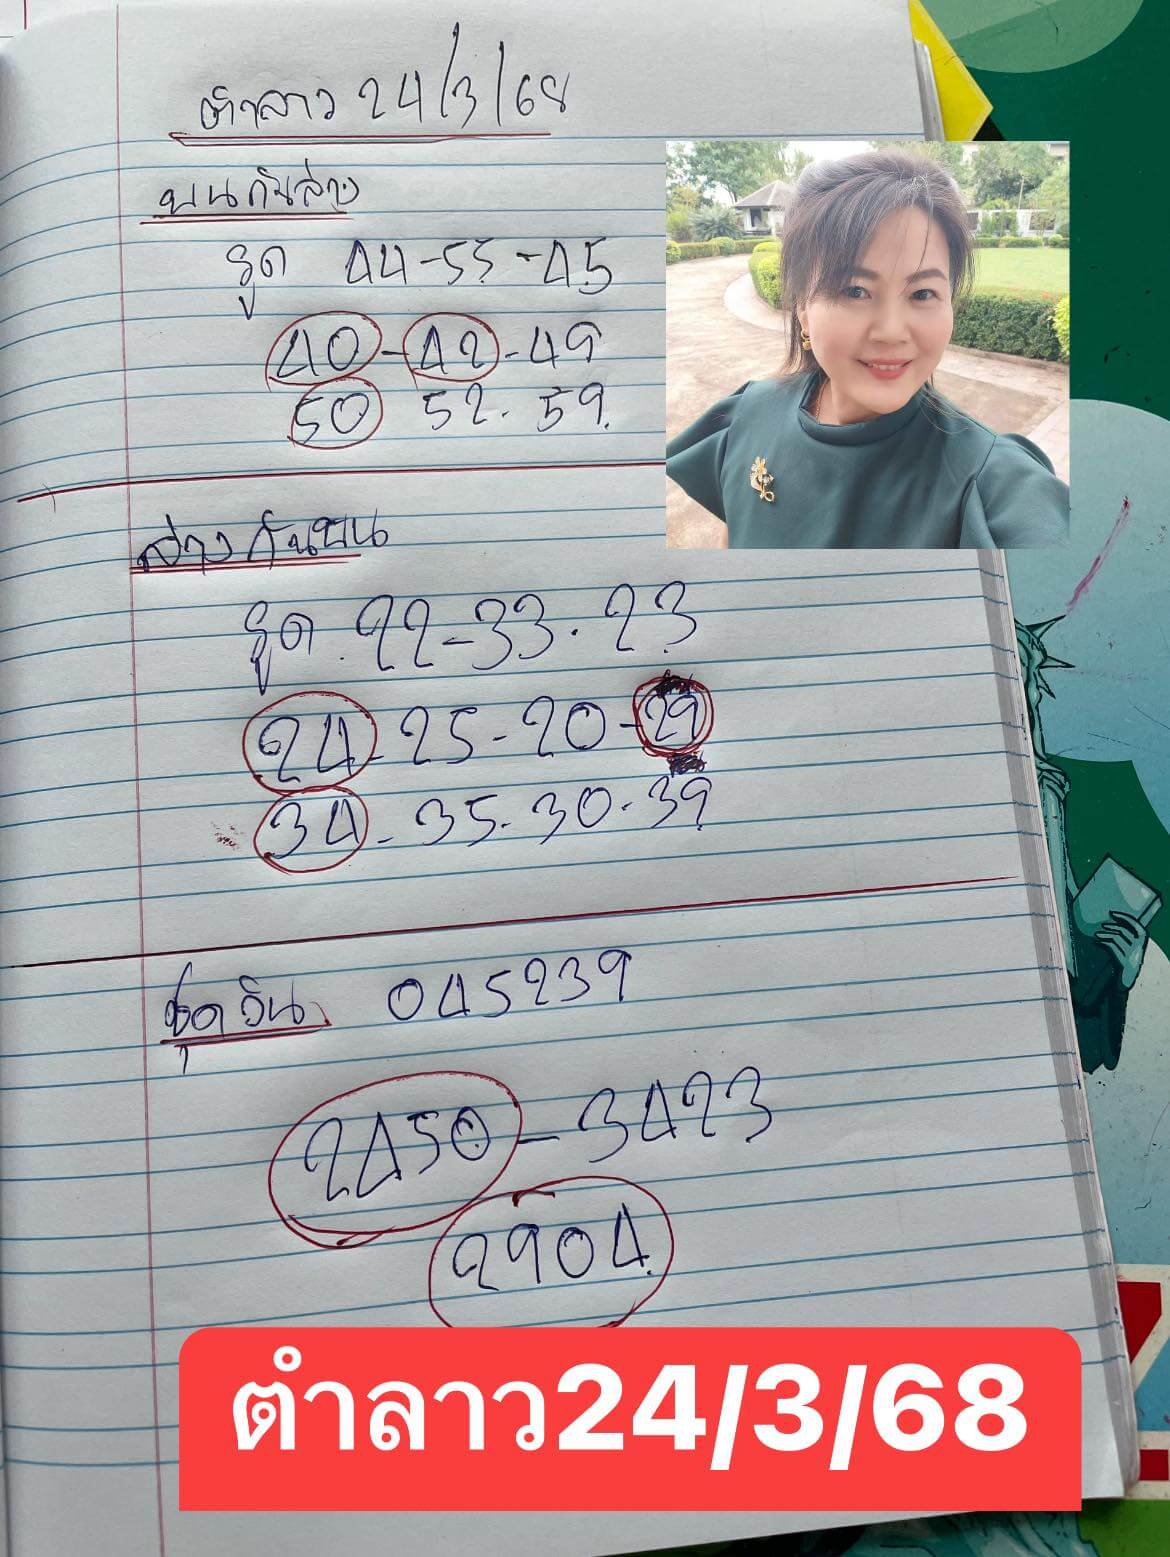 ตำลาว 24/3/68
บนกันล่าง
รูด 44-55-45
40-42-49
50 52. 59.
ล่างกันบน
รูด. 22-33. 23
24-25-20-29
34-35.30.39
ชุดวิน 045239
2450-3423
2904
ตำลาว24/3/68